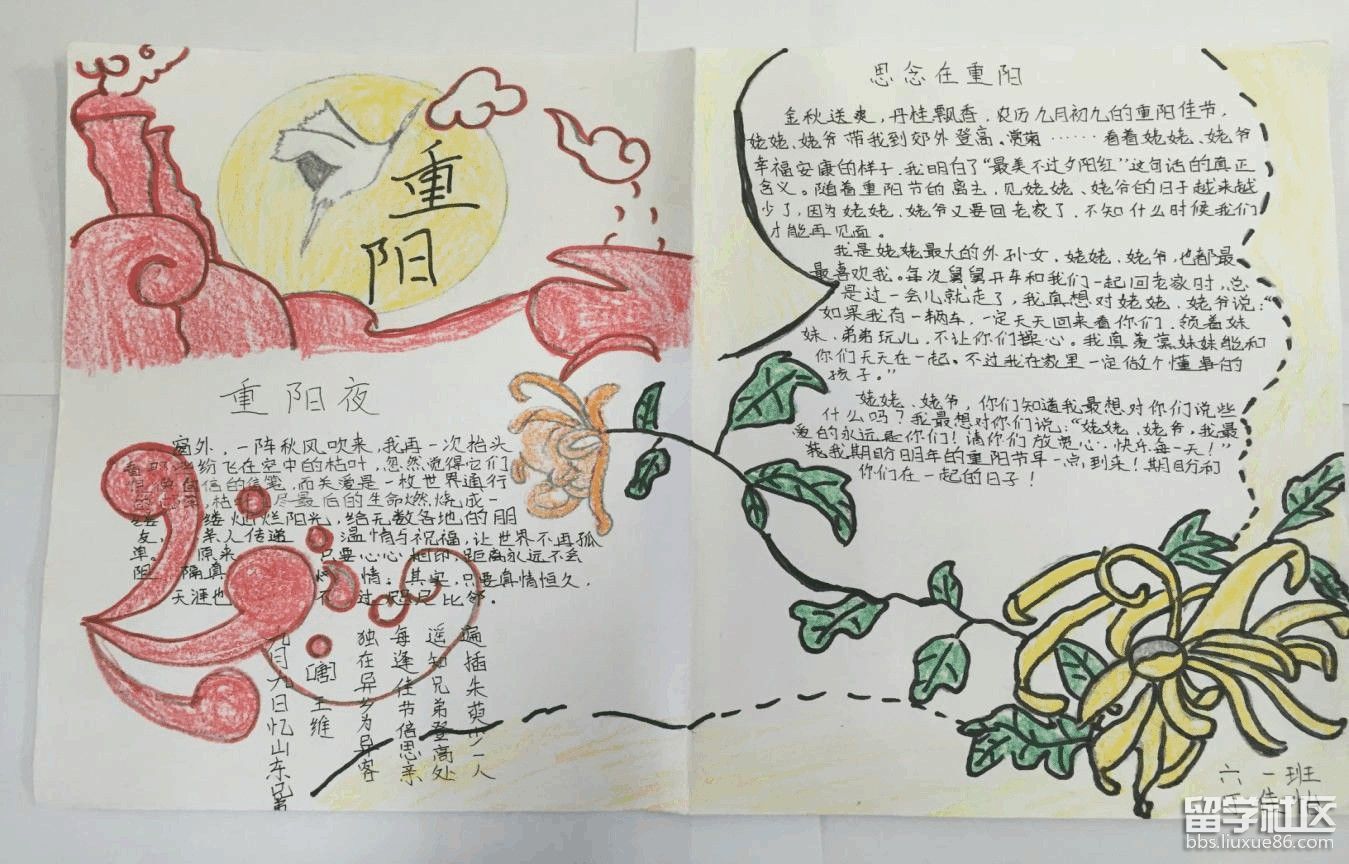 重
阳
重阳夜
窗外,一阵秋风吹来,我再一次抬头
纷飞在空中的枯叶,忽然觉得它们
信的信笺,而关爱是一枚世界通行
尽最后的生命燃烧成一
缕 灿烂阳光,给无数各地的朋
友, 亲人传递 温情与祝福,让世界不再孤
单。 原来 只要心心相印,距离永远不会
阻 隔真 情。其实,只要真情恒久,
天涯也 不过 咫尺比邻。
九月九日忆山东兄弟
[唐] 王维
独在异乡为异客
每逢佳节倍思亲
遥知兄弟登高处
遍插朱萸少一人
思念在重阳
金秋送爽,丹桂飘香,农历九月初九的重阳佳节,
姥姥、姥爷带我到郊外登高、赏菊……看着姥姥、姥爷
幸福安康的样子,我明白了“最美不过夕阳红”这句话的真正
含义。随着重阳节的离去,见姥姥、姥爷的日子越来越
少了,因为姥姥、姥爷又要回老家了,不知什么时候我们
才能再见面。
我是姥姥最大的外孙女,姥姥、姥爷,也都最
最喜欢我。每次舅舅开车和我们一起回老家时,总
是过一会儿就走了,我真想对姥姥、姥爷说:“
如果我有一辆车,一定天天回来看你们,领着妹
妹、弟弟玩儿,不让你们操心。我真羡慕妹妹能和
你们天天在一起。不过我在家里一定做个懂事的
孩子。”
姥姥、姥爷,你们知道我最想对你们说些
什么吗?我最想对你们说:“姥姥、姥爷,我最
爱的永远是你们!请你们放宽心,快乐每一天!”
我期盼明年的重阳节早一点到来!期盼和
你们在一起的日子!
六一班
留学社区
bbs.liuxue86.com